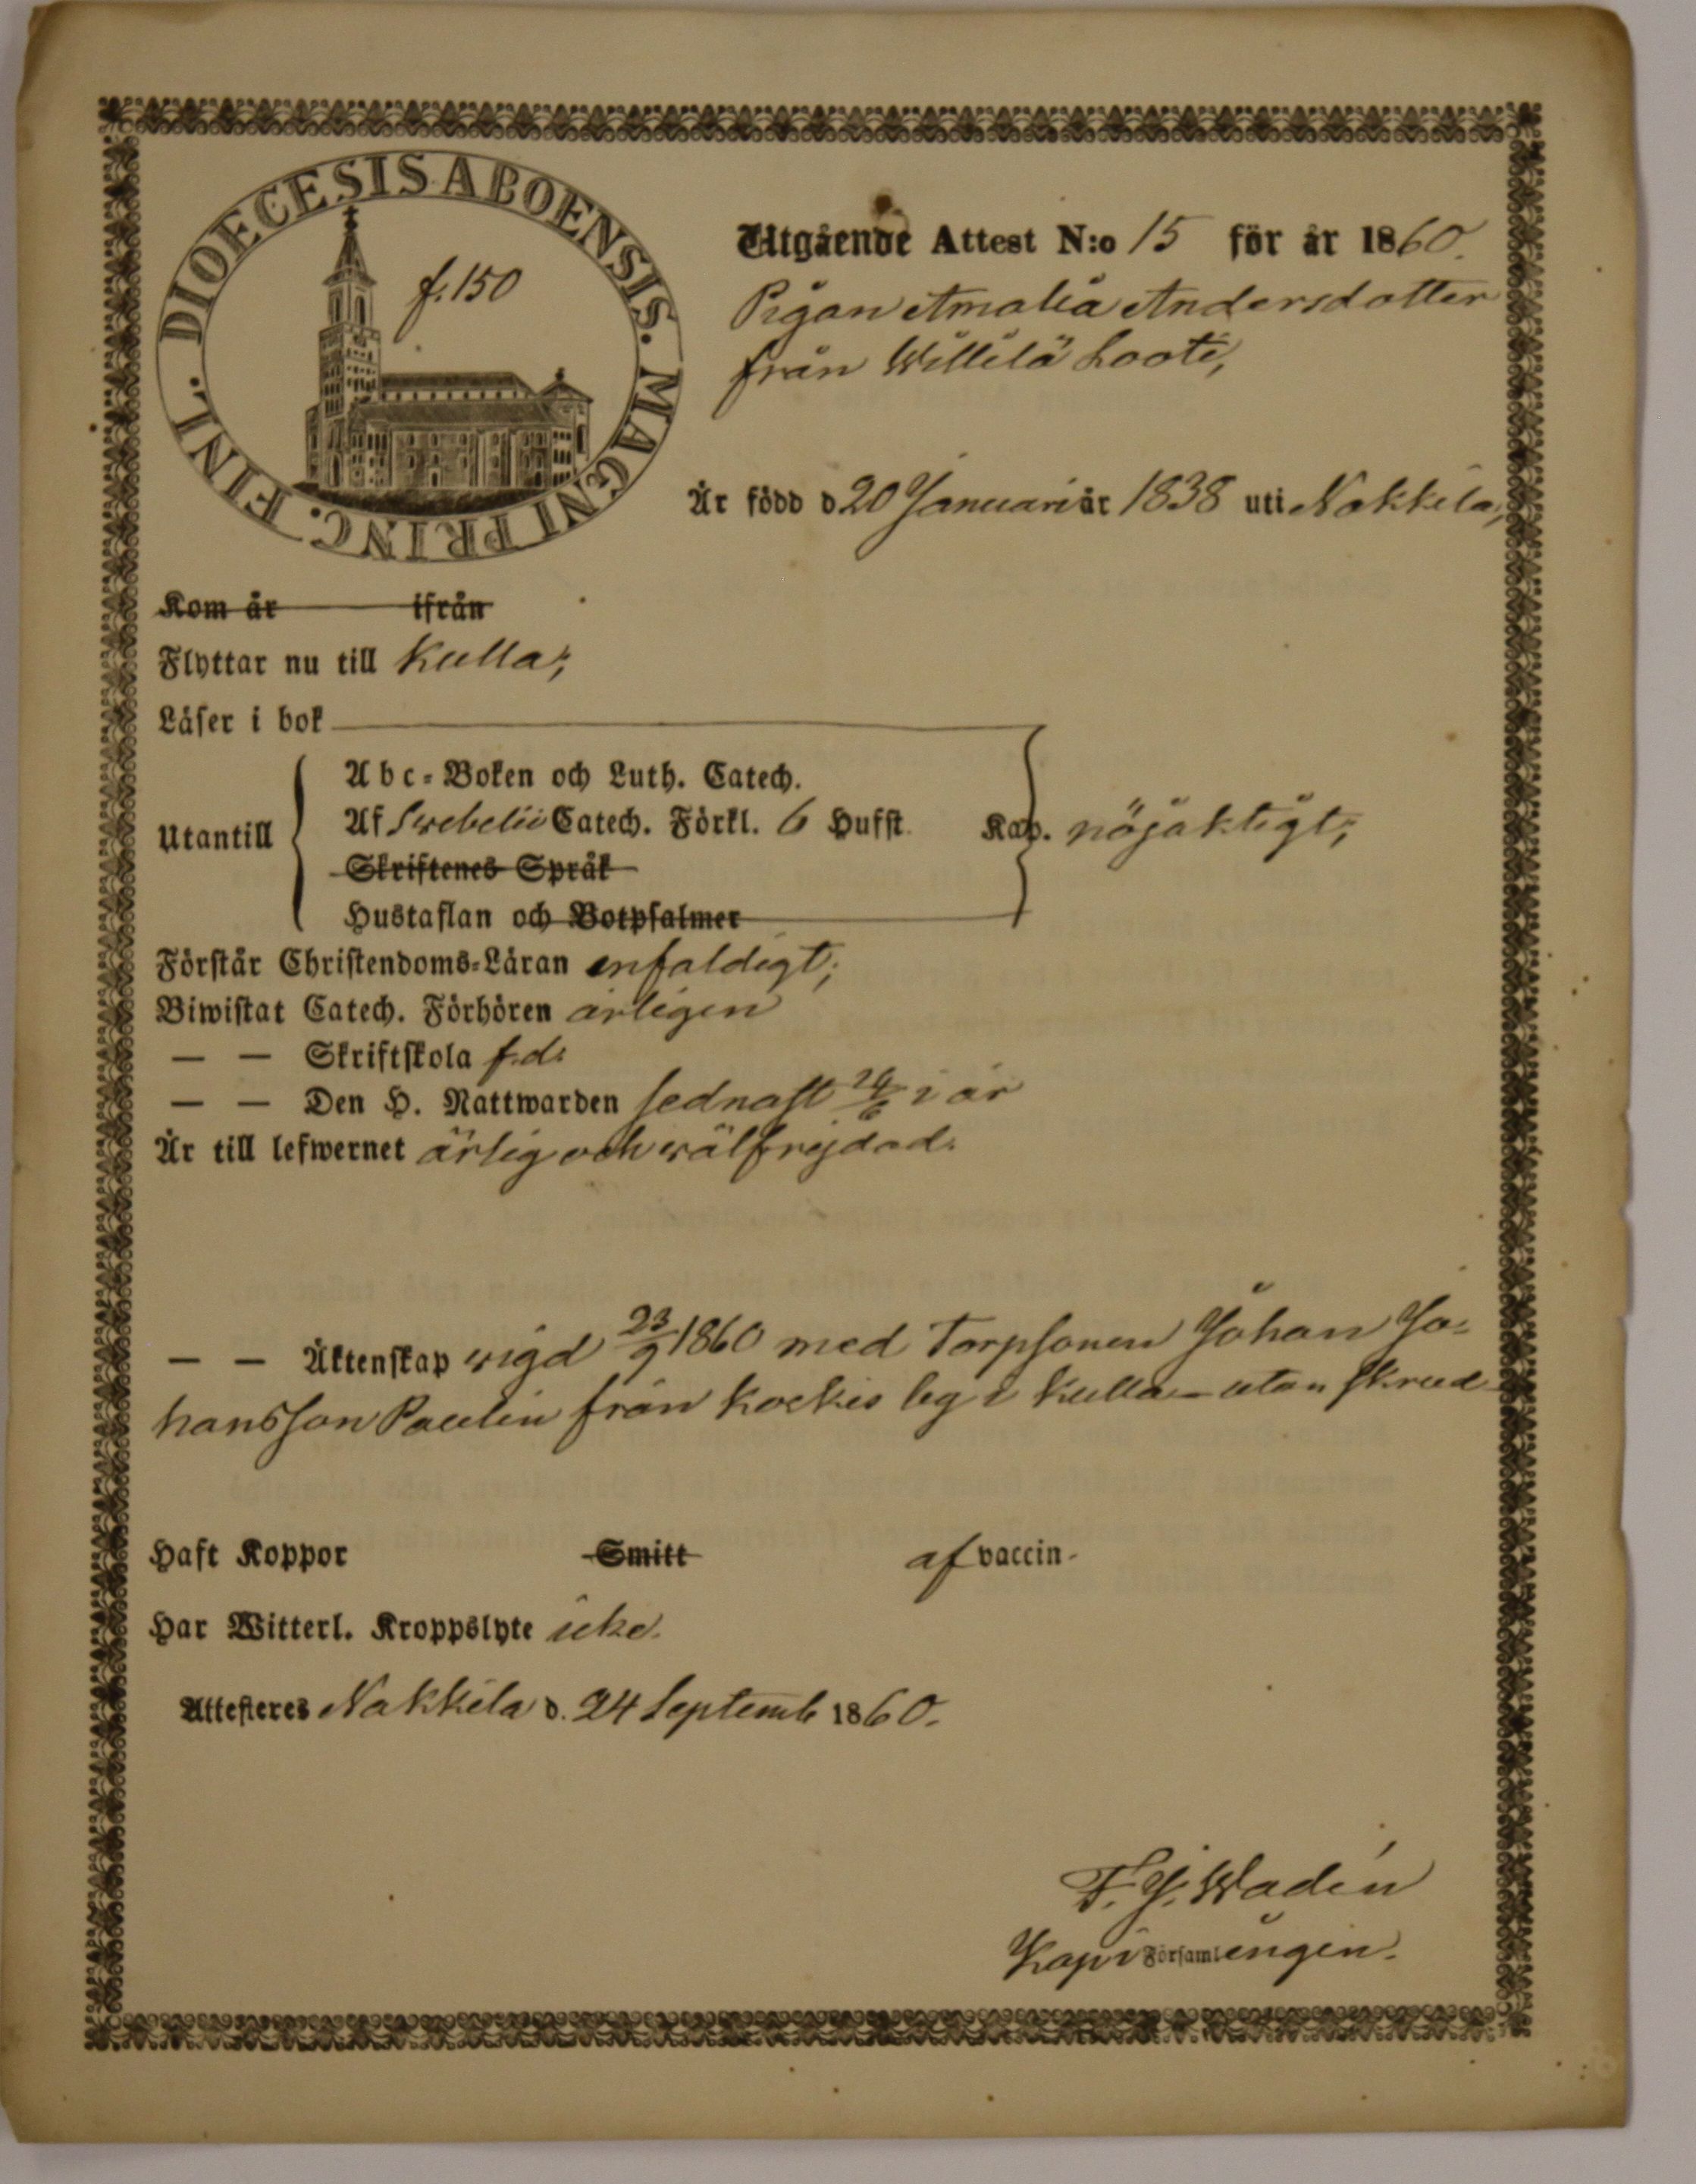 DIOECESIS ABOENSIS. MAGNI PRINC. FINL.
f. 150
Utgående Attest N:o 15 för år 1860.
Pigan Amalia Andersdotter
från Willilä Looti,
Är född d 20 Januari år 1838 uti Nakkila,
Kom år ifrån
Flyttar nu till Kulla;
Läser i bok
Abc-Boken och Luth. Catech.
Utantill
Af Svebelii Catech. Förkl. 6 Hufst. Kap. nöjaktigt;
Skriftenes Språk
Hustaflan och Botpsalmer
Förstår Christendoms-Läran enfaldigt;
Biwistat Catech. Förhören årligen
— — Skriftskola f.d.
— — Den H. Nattwarden sednast 24/6 i år
Är till lefwernet ärlig och wälfrejdad.
— — Äktenskap wigd 23/9 1860 med Torpsonen Johan Jo-
hansson Paulin från Kockis by i Kulla – utan skrud
Haft Koppor Smitt af vaccin.
Har Witterl. Kroppslyte icke.
Attesteres Nakkila d. 24 Septemb 1860.
F. J. Wadén
Kap i Församlingen.